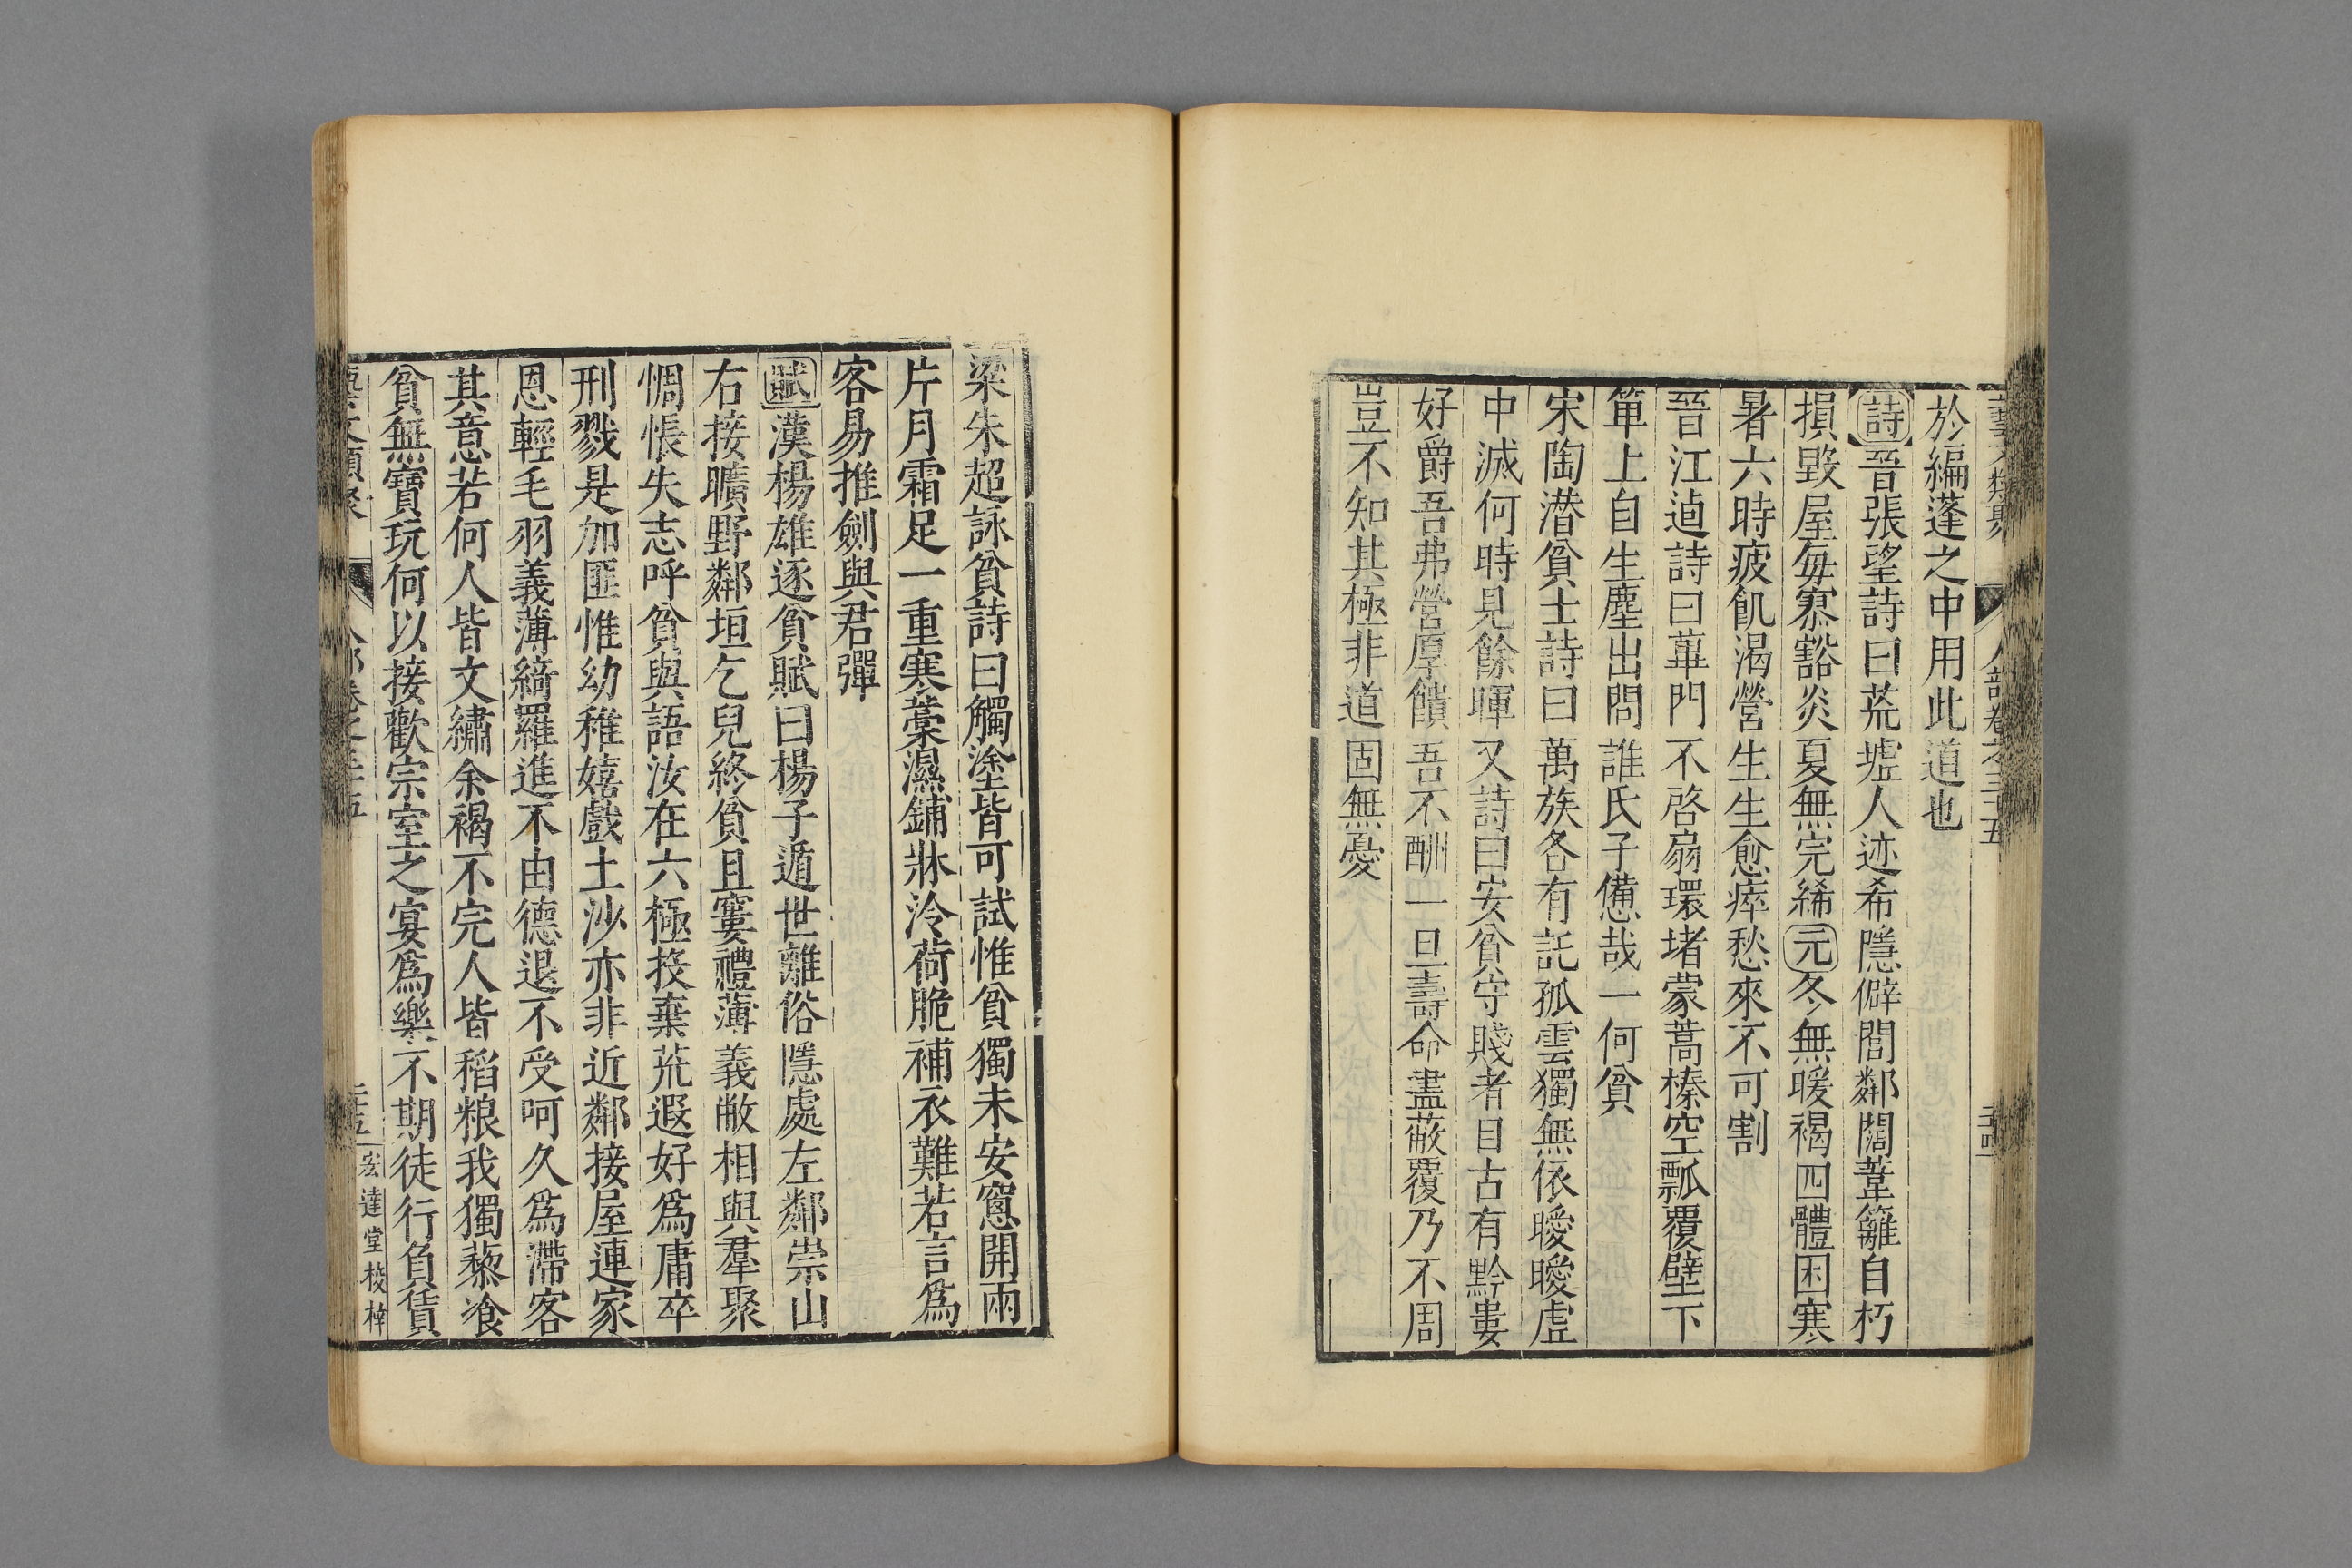 藝文類聚 人部卷之三十五 二十四
於編蓬之中用此道也
詩晉張望詩曰荒墟人迹希隱僻閭鄰闊葦籬自朽
損毀屋每寥豁炎夏無完絺元冬無暖褐四體困寒
暑六時疲飢渴營生生愈瘁愁來不可割
晉江逌詩曰蓽門不啓扇環堵蒙蒿榛空瓢覆壁下
簞上自生塵出問誰氏子憊哉一何貧
宋陶潛貧士詩曰萬族各有託孤雲獨無依曖曖虛
中滅何時見餘暉又詩曰安貧守賤者自古有黔婁
好爵吾弗營厚饋吾不酬一旦壽命盡蔽覆乃不周
豈不知其極非道固無憂
梁朱超詠貧詩曰觸塗皆可試惟貧獨未安窻開兩
片月霜足一重寒藁濕鋪牀冷荷脆補衣難若言爲
客易推劍與君彈
賦漢楊雄逐貧賦曰楊子遁世離俗隱處左鄰崇山
右接曠野鄰垣乞兒終貧且窶禮薄義敝相與羣聚
惆悵失志呼貧與語汝在六極投棄荒遐好爲庸卒
刑戮是加匪惟幼稚嬉戲土沙亦非近鄰接屋連家
恩輕毛羽義薄綺羅進不由德退不受呵久爲滯客
其意若何人皆文繡余褐不完人皆稻粮我獨藜飡
貧無寶玩何以接歡宗室之宴爲樂不期徒行負賃
藝文類聚 人部卷之三十五 二十五 宏達堂校梓